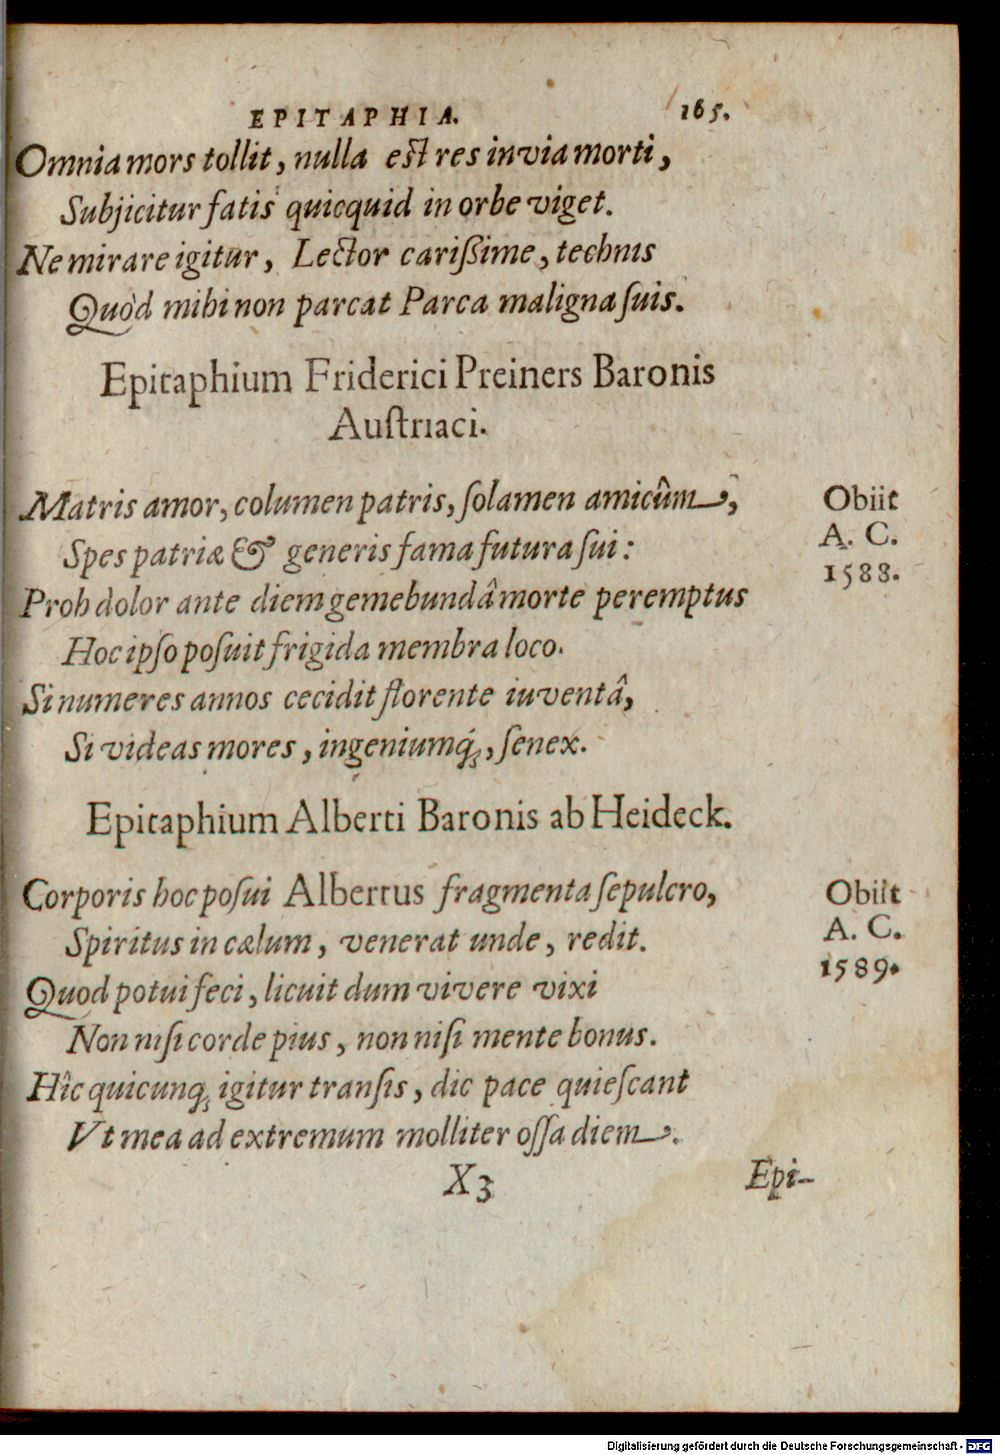 EPITAPHIA. 165.
Omnia mors tollit, nulla est res invia morti,
Subjicitur fatis quicquid in orbe viget.
Ne mirare igitur, Lector carißime, technis
Quòd mihi non parcat Parca maligna ſuis.
Epitaphium Friderici Preiners Baronis
Auſtriaci.
Matris amor, columen patris, ſolamen amicûm,
Spes patriæ & generis fama futura ſui:
Proh dolor ante diem gemebundâ morte peremptus
Hoc ipſo poſuit frigida membra loco.
Si numeres annos cecidit florente iuventâ,
Si videas mores, ingeniumq́;, ſenex.
Obiit
A. C.
1588.
Epitaphium Alberti Baronis ab Heideck.
Corporis hoc poſui Albertus fragmenta ſepulcro,
Spiritus in cælum, venerat unde, redit.
Quod potui feci, licuit dum vivere vixi
Non niſi corde pius, non niſi mente bonus.
Hîc quicunq; igitur tranſis, dic pace quieſcant
Vt mea ad extremum molliter oſſa diem.
Obiit
A. C.
1589.
X3 Epi-
Digitalisierung gefördert durch die Deutsche Forschungsgemeinschaft - DFG